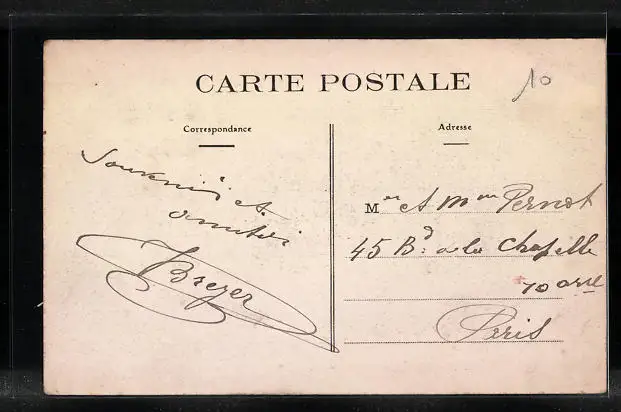 CARTE POSTALE
10
Correspondance
Souvenirs et
amitiés
Brezer
Adresse
Mr et Mme Pernot
45 Bd de la Chapelle
10 arr
Paris